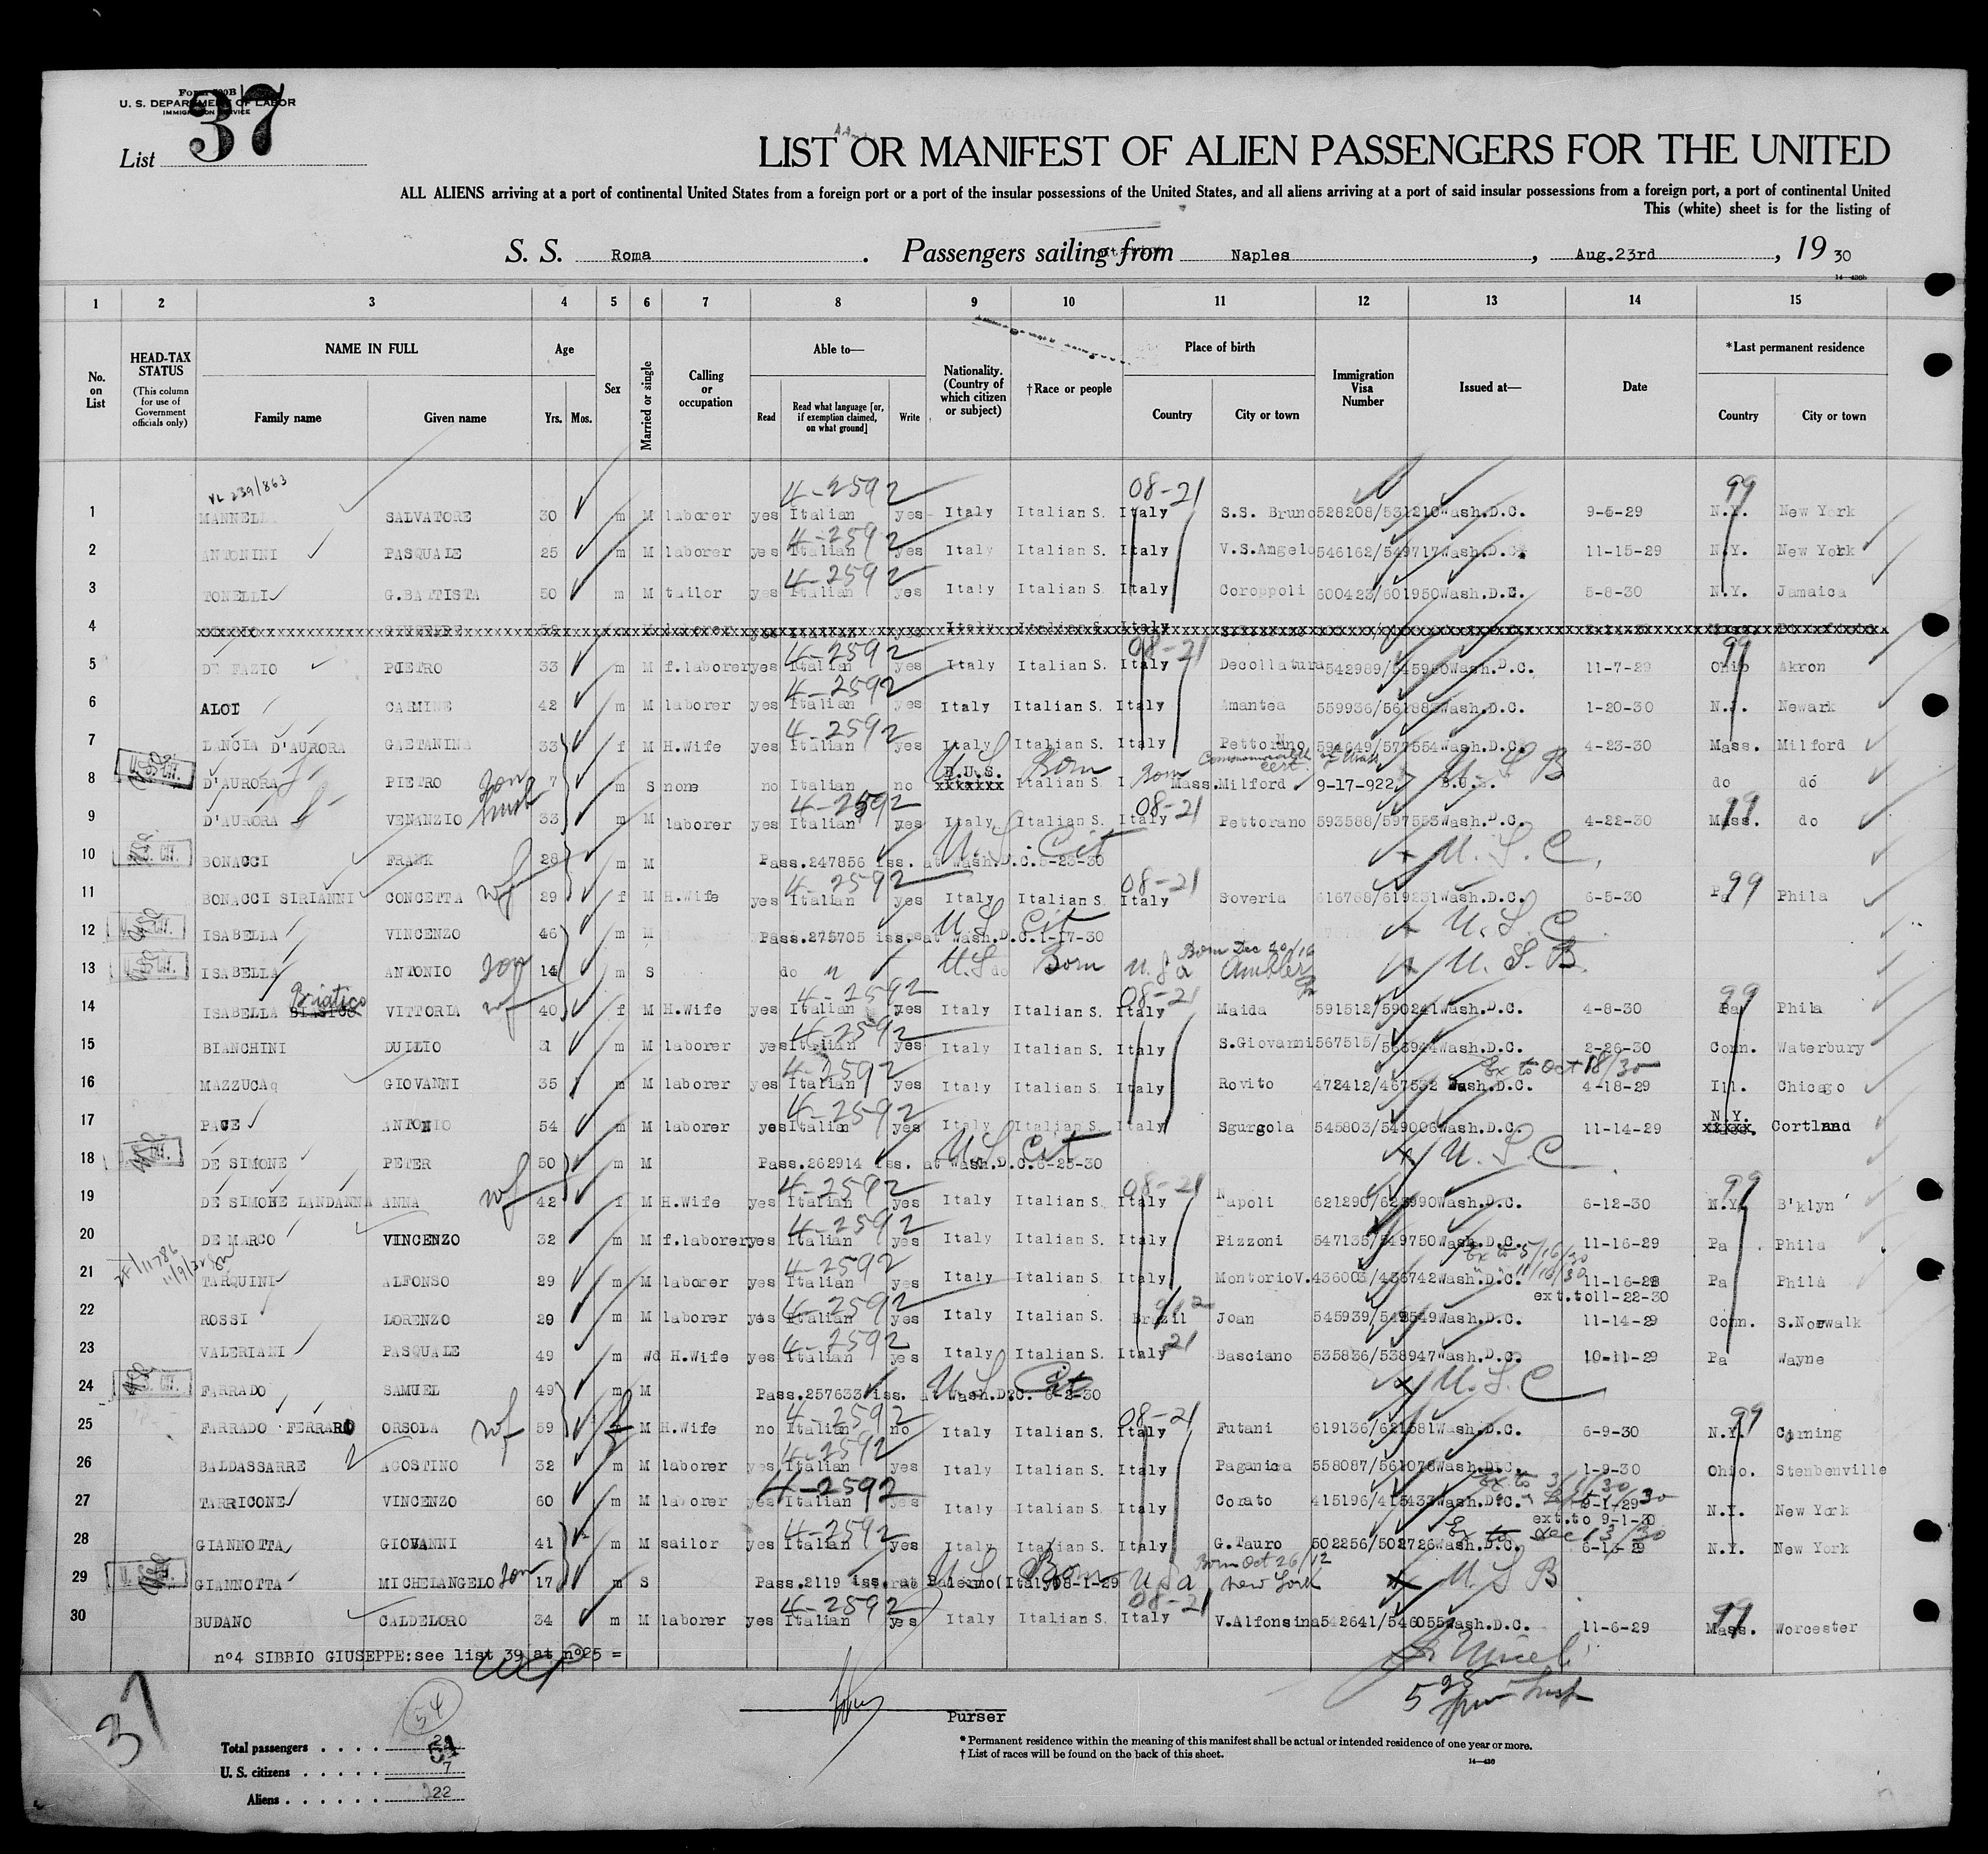 Form 500B
U. S. DEPARTMENT OF LABOR
IMMIGRATION SERVICE
List 37
LIST OR MANIFEST OF ALIEN PASSENGERS FOR THE UNITED
ALL ALIENS arriving at a port of continental United States from a foreign port or a port of the insular possessions of the United States, and all aliens arriving at a port of said insular possessions from a foreign port, a port of continental United
This (white) sheet is for the listing of
S. S. Roma. Passengers sailing from Naples, Aug.23rd, 1930
1 2 3 4 5 6 7 8 9 10 11 12 13 14 15
No. on List
HEAD-TAX STATUS (This column for use of Government officials only)
NAME IN FULL Family name Given name
Age Yrs. Mos.
Sex
Married or single
Calling or occupation
Able to— Read Read what language [or, if exemption claimed, on what ground] Write
Nationality. (Country of which citizen or subject)
†Race or people
Place of birth Country City or town
Immigration Visa Number
Issued at—
Date
*Last permanent residence Country City or town
VL 239/863
4-2592 08-21 99
1 SALVATORE 30 m M laborer yes Italian yes Italy Italian S. Italy S.S. Bruno 528208/531210 Wash.D.C. 9-6-29 N.Y. New York
4-2592
2 ANTONINI PASQUALE 25 m M laborer yes Italian yes Italy Italian S. Italy V.S.Angelo 546162/549717 Wash.D.C. 11-15-29 N.Y. New York
4-2592
3 TONELLI G.BATTISTA 50 m M tailor yes Italian yes Italy Italian S. Italy Coroppoli 600423/601950 Wash.D.C. 5-8-30 N.Y. Jamaica
4
4-2592 08-21 99
5 DE FAZIO PIETRO 33 m M f.laborer yes Italian yes Italy Italian S. Italy Decollatura 542989/545950 Wash.D.C. 11-7-29 Ohio Akron
4-2592
6 ALOI CARMINE 42 m M laborer yes Italian yes Italy Italian S. Italy Amantea Wash.D.C. 1-20-30 N.J. Newark
4-2592
7 LANCIA D'AURORA GAETANINA 33 f M H.Wife yes Italian yes Italy Italian S. Italy Pettorano Wash.D.C. 4-23-30 Mass. Milford
8 D'AURORA PIETRO son 7 m S none no Italian no B.U.S. U S Born Italian S. Born Mass. Milford 9-17-922 B.U.S. U S B do do
4-2592 08-21 99
9 D'AURORA VENANZIO husb 33 m M laborer yes Italian yes Italy Italian S. Italy Pettorano 593588/597553 Wash.D.C. 4-22-30 Mass. do
10 BONACCI FRANK 28 m M Pass.247856 iss. at Wash.D.C.5-23-30 U.S. Cit U.S.C.
4-2592 08-21 99
11 BONACCI SIRIANNI CONCETTA wf 29 f M H.Wife yes Italian yes Italy Italian S. Italy Soveria 616768/619231 Wash.D.C. 6-5-30 Pa Phila
12 ISABELLA VINCENZO 46 m M Pass.275705 iss. at Wash.D.C.1-17-30 U.S. Cit U.S.C.
Born Dec 20/16
13 ISABELLA ANTONIO son 14 m S do U.S. do Born U S a Ambler Pa U. S. B.
Briatico
4-2592 08-21 99
14 ISABELLA VITTORIA wf 40 f M H.Wife yes Italian yes Italy Italian S. Italy Maida 591512/590241 Wash.D.C. 4-8-30 Pa Phila
4-2592
15 BIANCHINI DUILIO 31 m M laborer yes Italian yes Italy Italian S. Italy S.Giovanni 567515/568944 Wash.D.C. 2-26-30 Conn. Waterbury
4-2592 Ex to Oct 18/30
16 MAZZUCA GIOVANNI 35 m M laborer yes Italian yes Italy Italian S. Italy Rovito 472412/467532 Wash.D.C. 4-18-29 Ill. Chicago
4-2592
17 PACE ANTONIO 54 m M laborer yes Italian yes Italy Italian S. Italy Sgurgola 545803/549006 Wash.D.C. 11-14-29 N.Y. Cortland
18 DE SIMONE PETER 50 m M Pass.262914 iss. at Wash.D.C.6-25-30 U.S. Cit U.S.C
4-2592 08-21 99
19 DE SIMONE LANDANNA ANNA wf 42 f M H.Wife yes Italian yes Italy Italian S. Italy Napoli 621290/625990 Wash.D.C. 6-12-30 N.Y. B'klyn
4-2592
20 DE MARCO VINCENZO 32 m M f.laborer yes Italian yes Italy Italian S. Italy Pizzoni 547135/549750 Wash.D.C. 11-16-29 Pa Phila
4-2592 Ex to 5/16/30 " " 11/16/30
21 TARQUINI ALFONSO 29 m M laborer yes Italian yes Italy Italian S. Italy MontorioV. 436003/436742 Wash.D.C. 11-16-28 Pa Phila
ext.to11-22-30
4-2592
22 ROSSI LORENZO 29 m M laborer yes Italian yes Italy Italian S. Brazil Joan 545939/549549 Wash.D.C. 11-14-29 Conn. S.Norwalk
4-2592 21
23 VALERIANI PASQUALE 49 m Wd H.Wife yes Italian yes Italy Italian S. Italy Basciano 535836/538947 Wash.D.C. 10-11-29 Pa Wayne
24 FARRADO SAMUEL 49 m M Pass.257633 iss. at Wash.D.C. 6-2-30 U.S. Cit U.S.C
4-2592 08-21 99
25 FARRADO FERRARO ORSOLA wf 59 f M H.Wife no Italian no Italy Italian S. Italy Futani 619136/621581 Wash.D.C. 6-9-30 N.Y. Corning
4-2592
26 BALDASSARRE AGOSTINO 32 m M laborer yes Italian yes Italy Italian S. Italy Paganica 558087/561078 Wash.D.C. 1-9-30 Ohio. Stenbenville
4-2592 Ex to 3/1/30
27 TARRICONE VINCENZO 60 m M laborer yes Italian yes Italy Italian S. Italy Corato 415196/415433 Wash.D.C. 9-1-29 N.Y. New York
ext.to 9-1-30
4-2592 Ex to Dec 13/30
28 GIANNOTTA GIOVANNI 41 m M sailor yes Italian yes Italy Italian S. Italy G.Tauro 502256/502726 Wash.D.C. N.Y. New York
Born Oct 26/12
29 GIANNOTTA MICHELANGELO son 17 m S Pass.2119 iss. at Palermo(Italy)8-1-29 U.S. Born U S a New York U S B
4-2592 08-21 99
30 BUDANO CALDELORO 34 m M laborer yes Italian yes Italy Italian S. Italy V.Alfonsina 542641/546055 Wash.D.C. 11-6-29 Mass. Worcester
nº4 SIBBIO GIUSEPPE:see list 39 at nº25 =
37
54
Purser
Total passengers 29
U. S. citizens 7
Aliens 22
* Permanent residence within the meaning of this manifest shall be actual or intended residence of one year or more.
† List of races will be found on the back of this sheet.
14—430